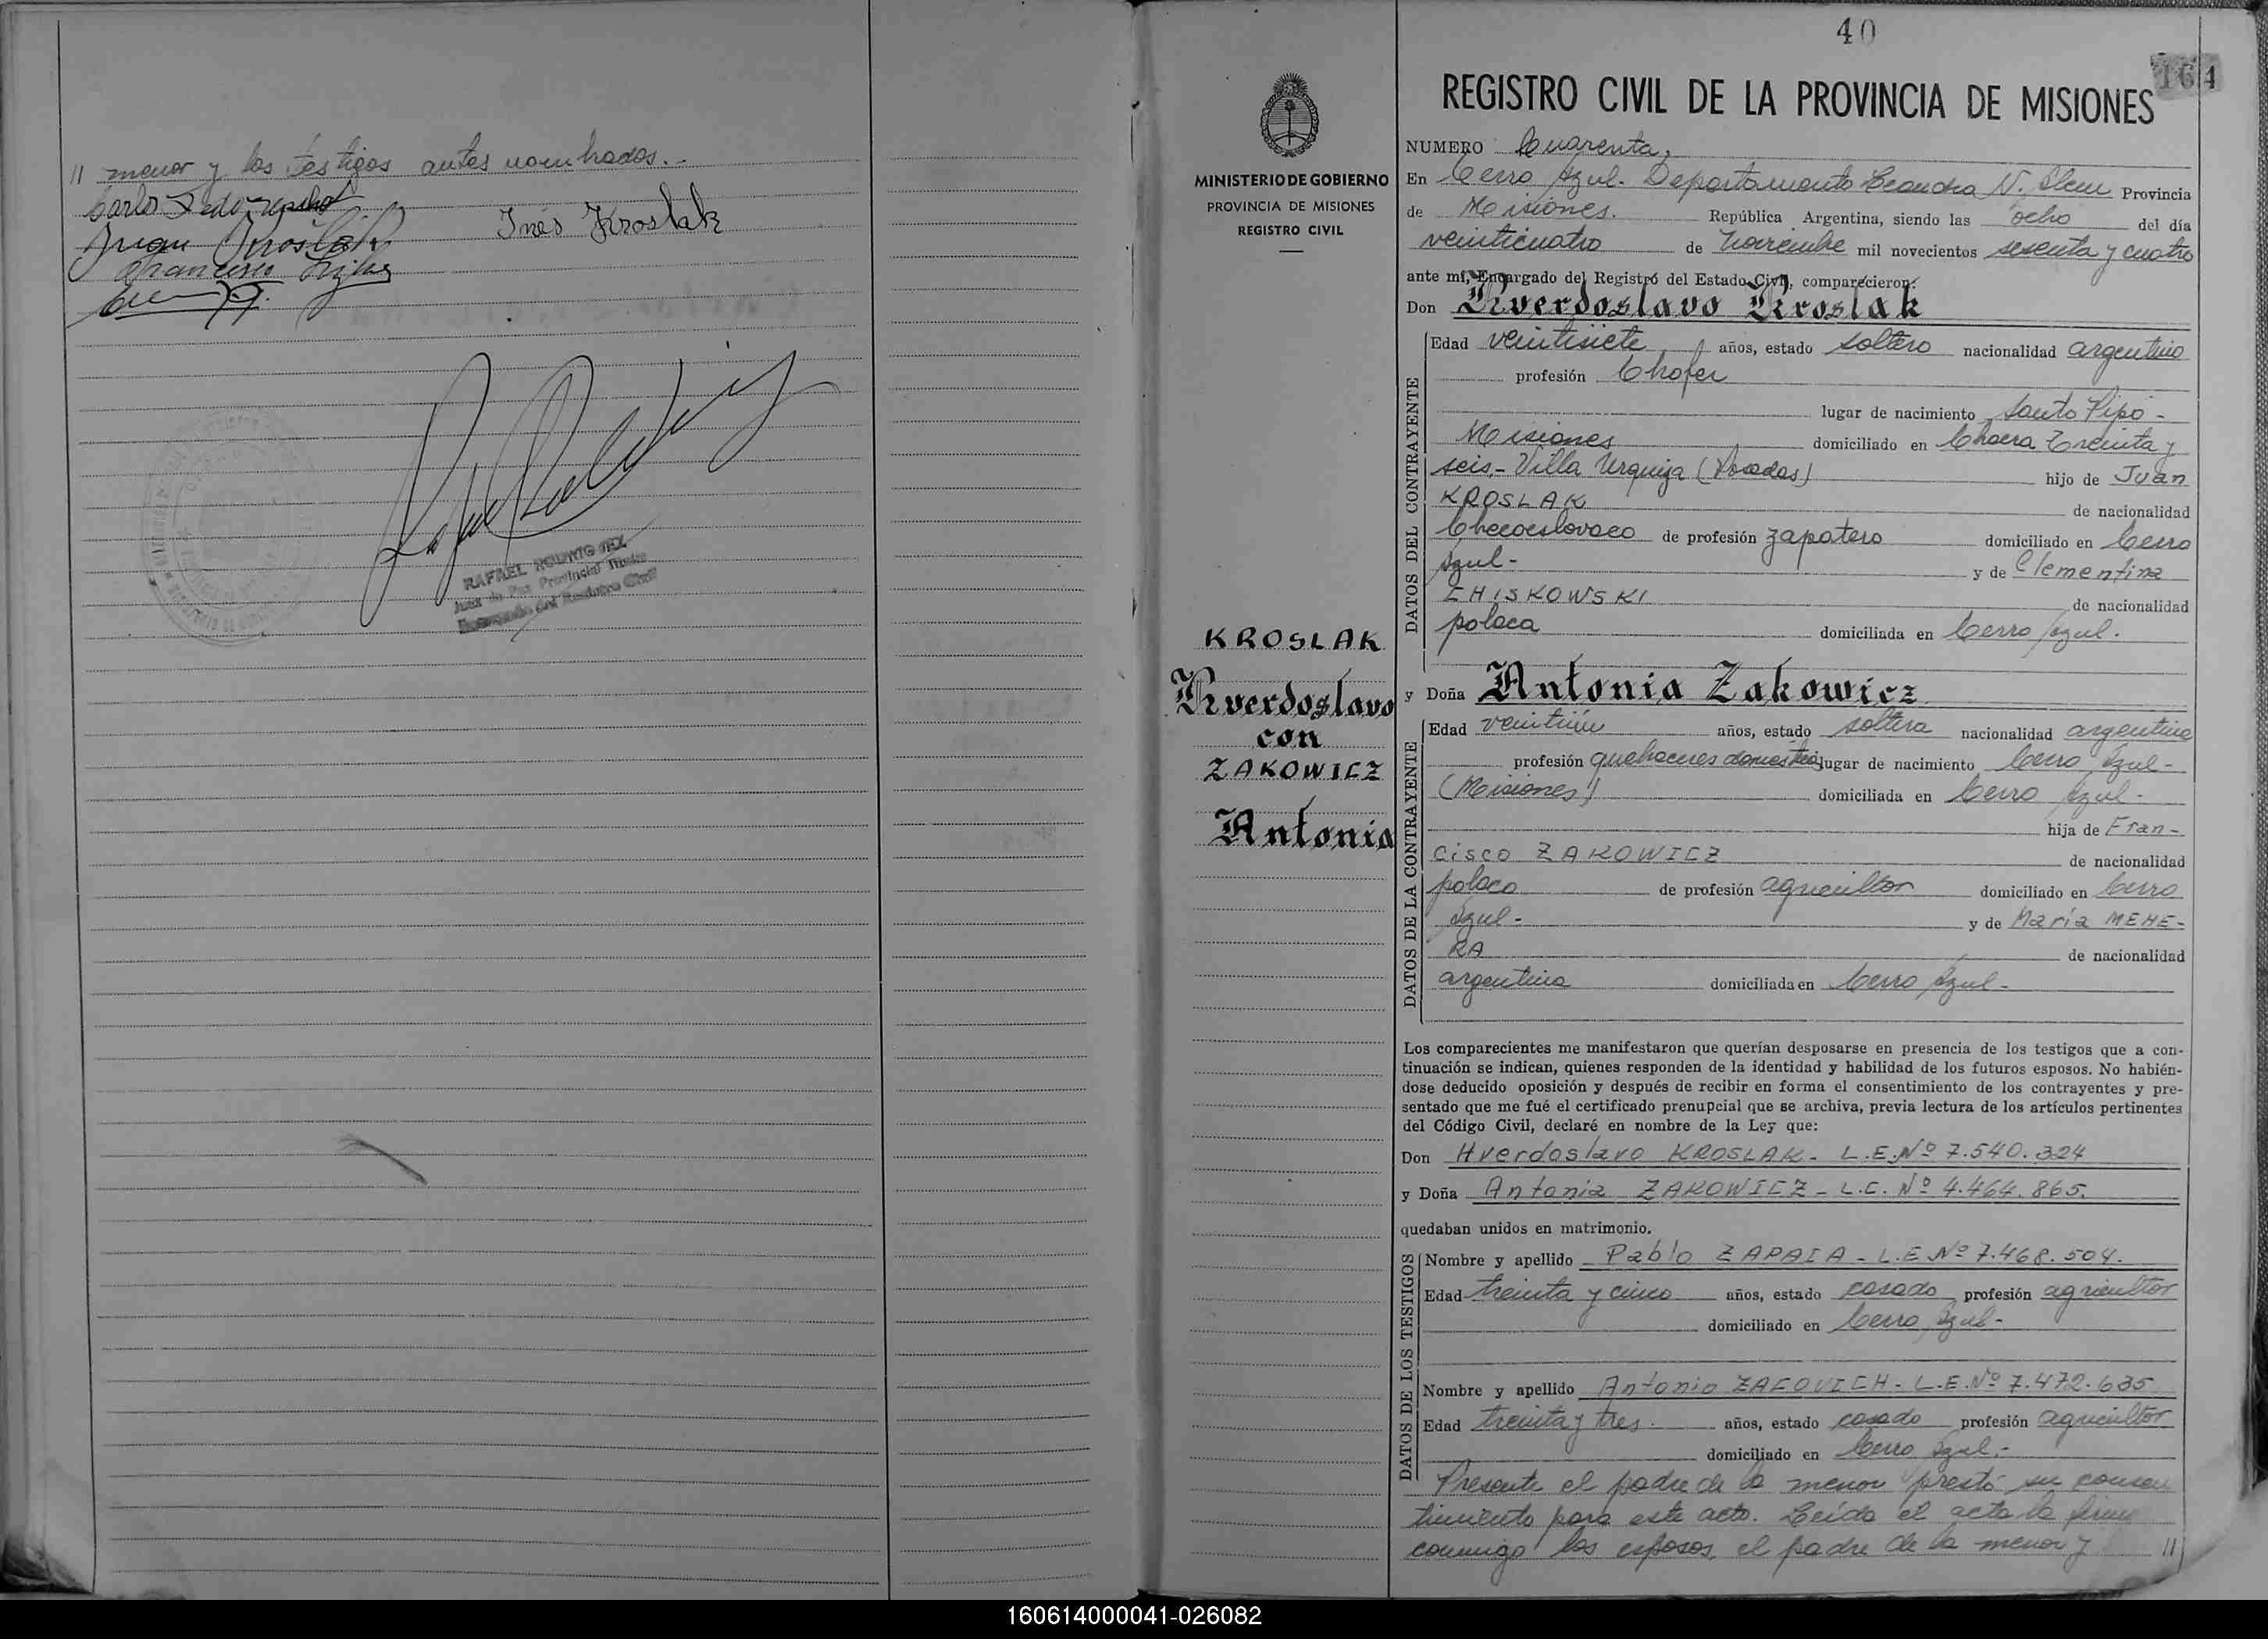 " menor y los testigos antes nombrados.-
Carlos
Juan Kroslak
Inés Kroslak
Francisco
RAFAEL
Juez de Paz Provincial Titular
Encargado del Registro Civil
MINISTERIO DE GOBIERNO
PROVINCIA DE MISIONES
REGISTRO CIVIL
KROSLAK
Hverdoslavo
con
ZAKOWICZ
Antonia
40
164
REGISTRO CIVIL DE LA PROVINCIA DE MISIONES
NUMERO Cuarenta,
En Cerro Azul. Departamento Leandro N. Alem Provincia
de Misiones. República Argentina, siendo las ocho del día
veinticuatro de Noviembre mil novecientos sesenta y cuatro
ante mí, Encargado del Registro del Estado Civil, comparecieron:
Don Hverdoslavo Kroslak
DATOS DEL CONTRAYENTE
Edad veintisiete años, estado soltero nacionalidad argentino
profesión Chofer
lugar de nacimiento Santo Pipó-
Misiones domiciliado en Chacra Treinta y
seis.- Villa Urquiza (Posadas) hijo de Juan
KROSLAK de nacionalidad
Checoeslovaco de profesión zapatero domiciliado en Cerro
Azul- y de Clementina
ZHISKOWSKI de nacionalidad
polaca domiciliada en Cerro Azul.
y Doña Antonia Zakowicz
DATOS DE LA CONTRAYENTE
Edad veintiún años, estado soltera nacionalidad argentina
profesión quehaceres domésticos lugar de nacimiento Cerro Azul-
(Misiones) domiciliada en Cerro Azul-
hija de Fran-
cisco ZAKOWICZ de nacionalidad
polaco de profesión agricultor domiciliado en Cerro
Azul- y de María MEHE-
RA de nacionalidad
argentina domiciliada en Cerro Azul-
Los comparecientes me manifestaron que querían desposarse en presencia de los testigos que a con-
tinuación se indican, quienes responden de la identidad y habilidad de los futuros esposos. No habién-
dose deducido oposición y después de recibir en forma el consentimiento de los contrayentes y pre-
sentado que me fué el certificado prenupcial que se archiva, previa lectura de los artículos pertinentes
del Código Civil, declaré en nombre de la Ley que:
Don Hverdoslavo KROSLAK- L.E.Nº 7.540.324
y Doña Antonia ZAKOWICZ- L.C. Nº 4.464.865.
quedaban unidos en matrimonio.
DATOS DE LOS TESTIGOS
Nombre y apellido Pablo ZAPAIA- L.E Nº 7.468.504.
Edad treinta y cinco años, estado casado profesión agricultor
domiciliado en Cerro Azul-
Nombre y apellido Antonio ZAFOVICH- L.E.Nº 7.472.635
Edad treinta y tres. años, estado casado profesión agricultor
domiciliado en Cerro Azul.-
Presente el padre de la menor prestó su consen
timiento para este acto. Leída el acta la firman
conmigo los esposos, el padre de la menor y "
160614000041-026082